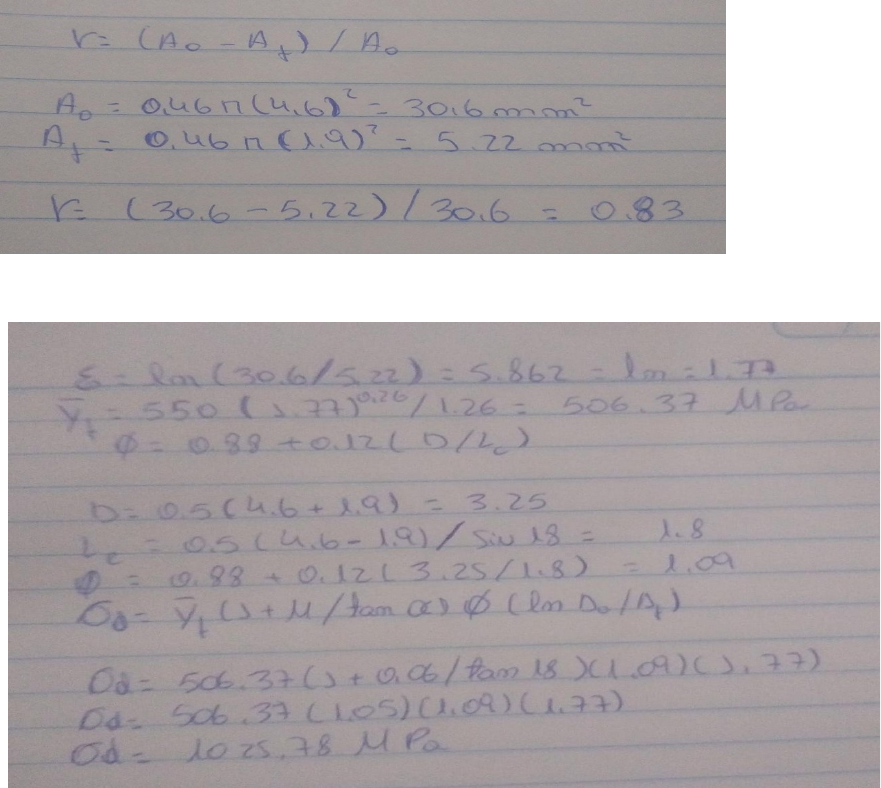 r = (A₀ - A_f) / A₀
A₀ = 0.46 π (4.6)² = 30.6 mm²
A_f = 0.46 π (1.9)² = 5.22 mm²
r = (30.6 - 5.22) / 30.6 = 0.83
ε = ln (30.6/5.22) = 5.862 = ln = 1.77
Ȳ_f = 550 (1.77)^0.26 / 1.26 = 506.37 MPa
φ = 0.88 + 0.12 ( D/L_c)
D = 0.5 (4.6 + 1.9) = 3.25
L_c = 0.5 (4.6 - 1.9) / sin 18 = 1.8
φ = 0.88 + 0.12 ( 3.25/1.8) = 1.09
σd = Ȳ_f (1 + μ / tan α) φ (ln A₀/A_f)
σd = 506.37 (1 + 0.06 / tan 18 )(1.09)(1.77)
σd = 506.37 (1.05)(1.09)(1.77)
σd = 1025.78 MPa